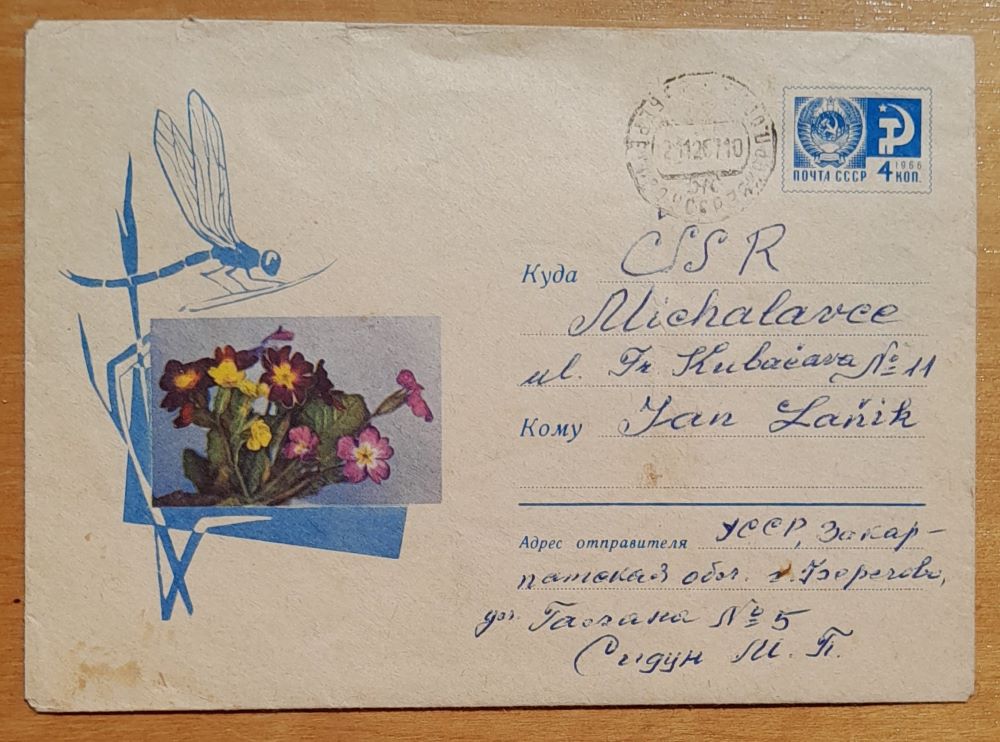 1966
ПОЧТА СССР 4 КОП.
Куда ČSSR
Michalavce
ul. Fr. Kubačava № 11
Кому Jan Laňik
Адрес отправителя УССР, Закар-
патская обл. г. Берегово,
ул. № 5
Сидун М. П.